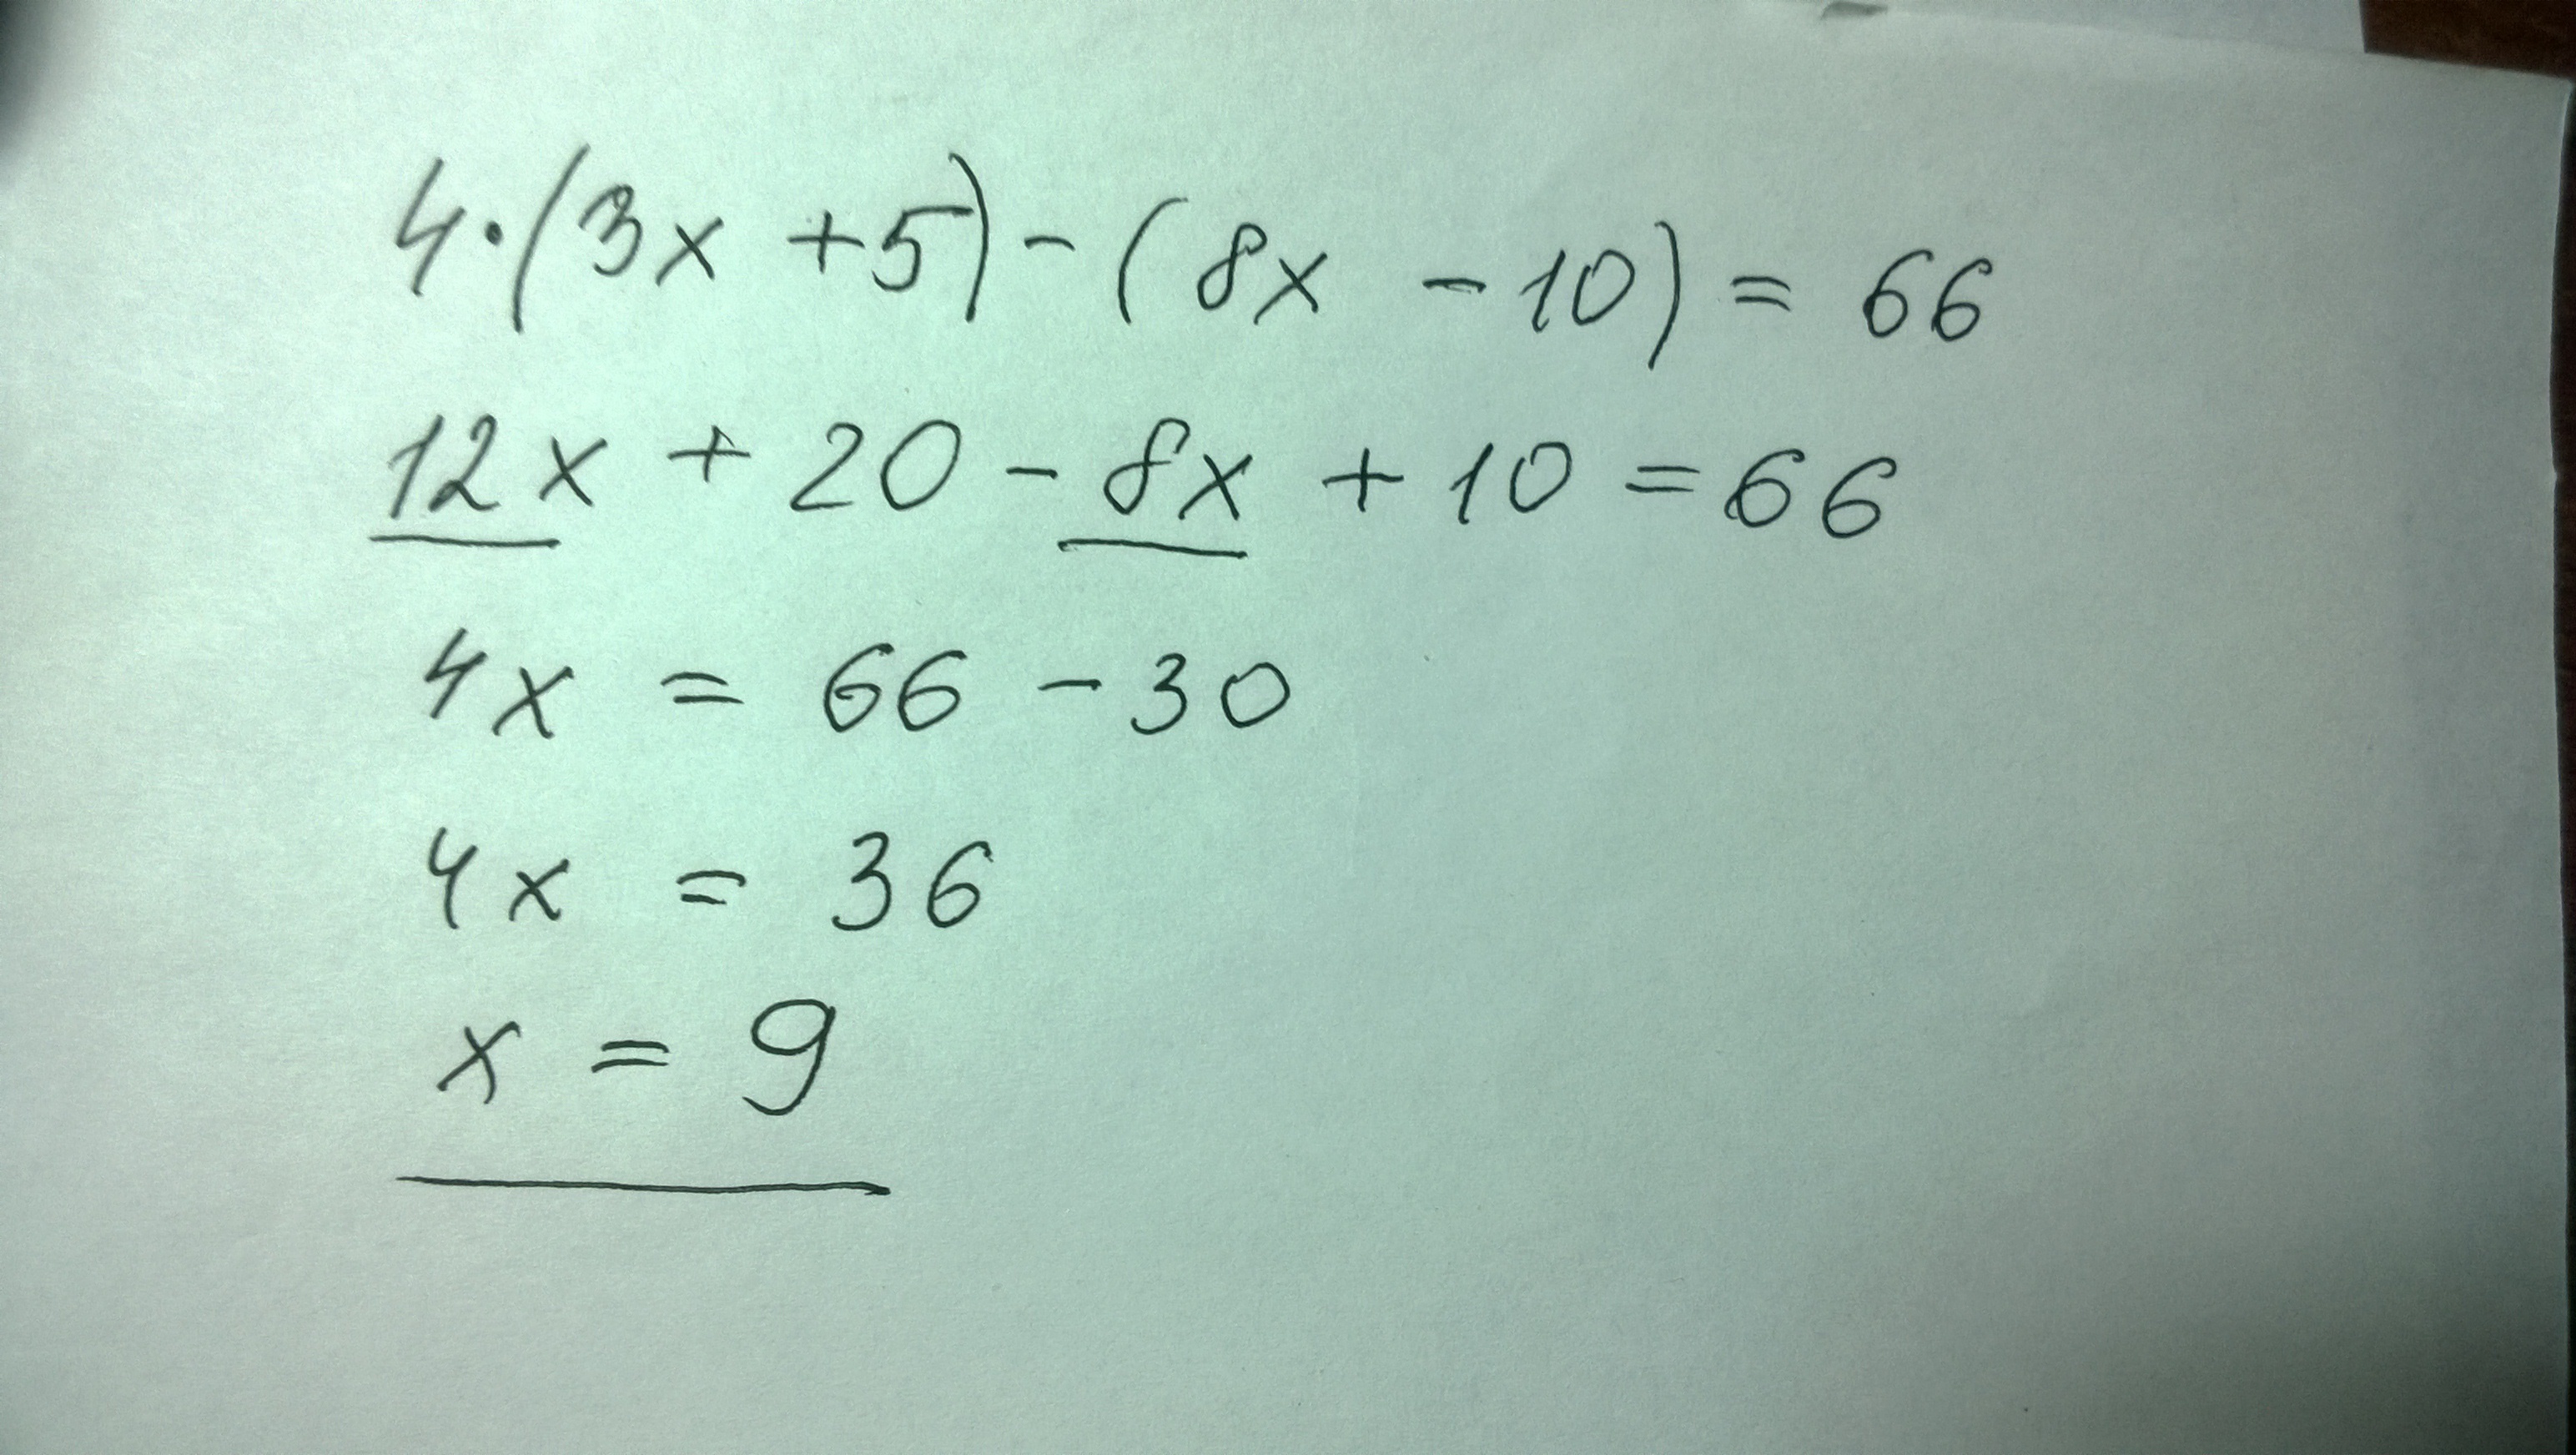 4·(3x +5)-(8x -10)= 66
12x + 20 - 8x + 10 = 66
4x = 66 - 30
4x = 36
x = 9